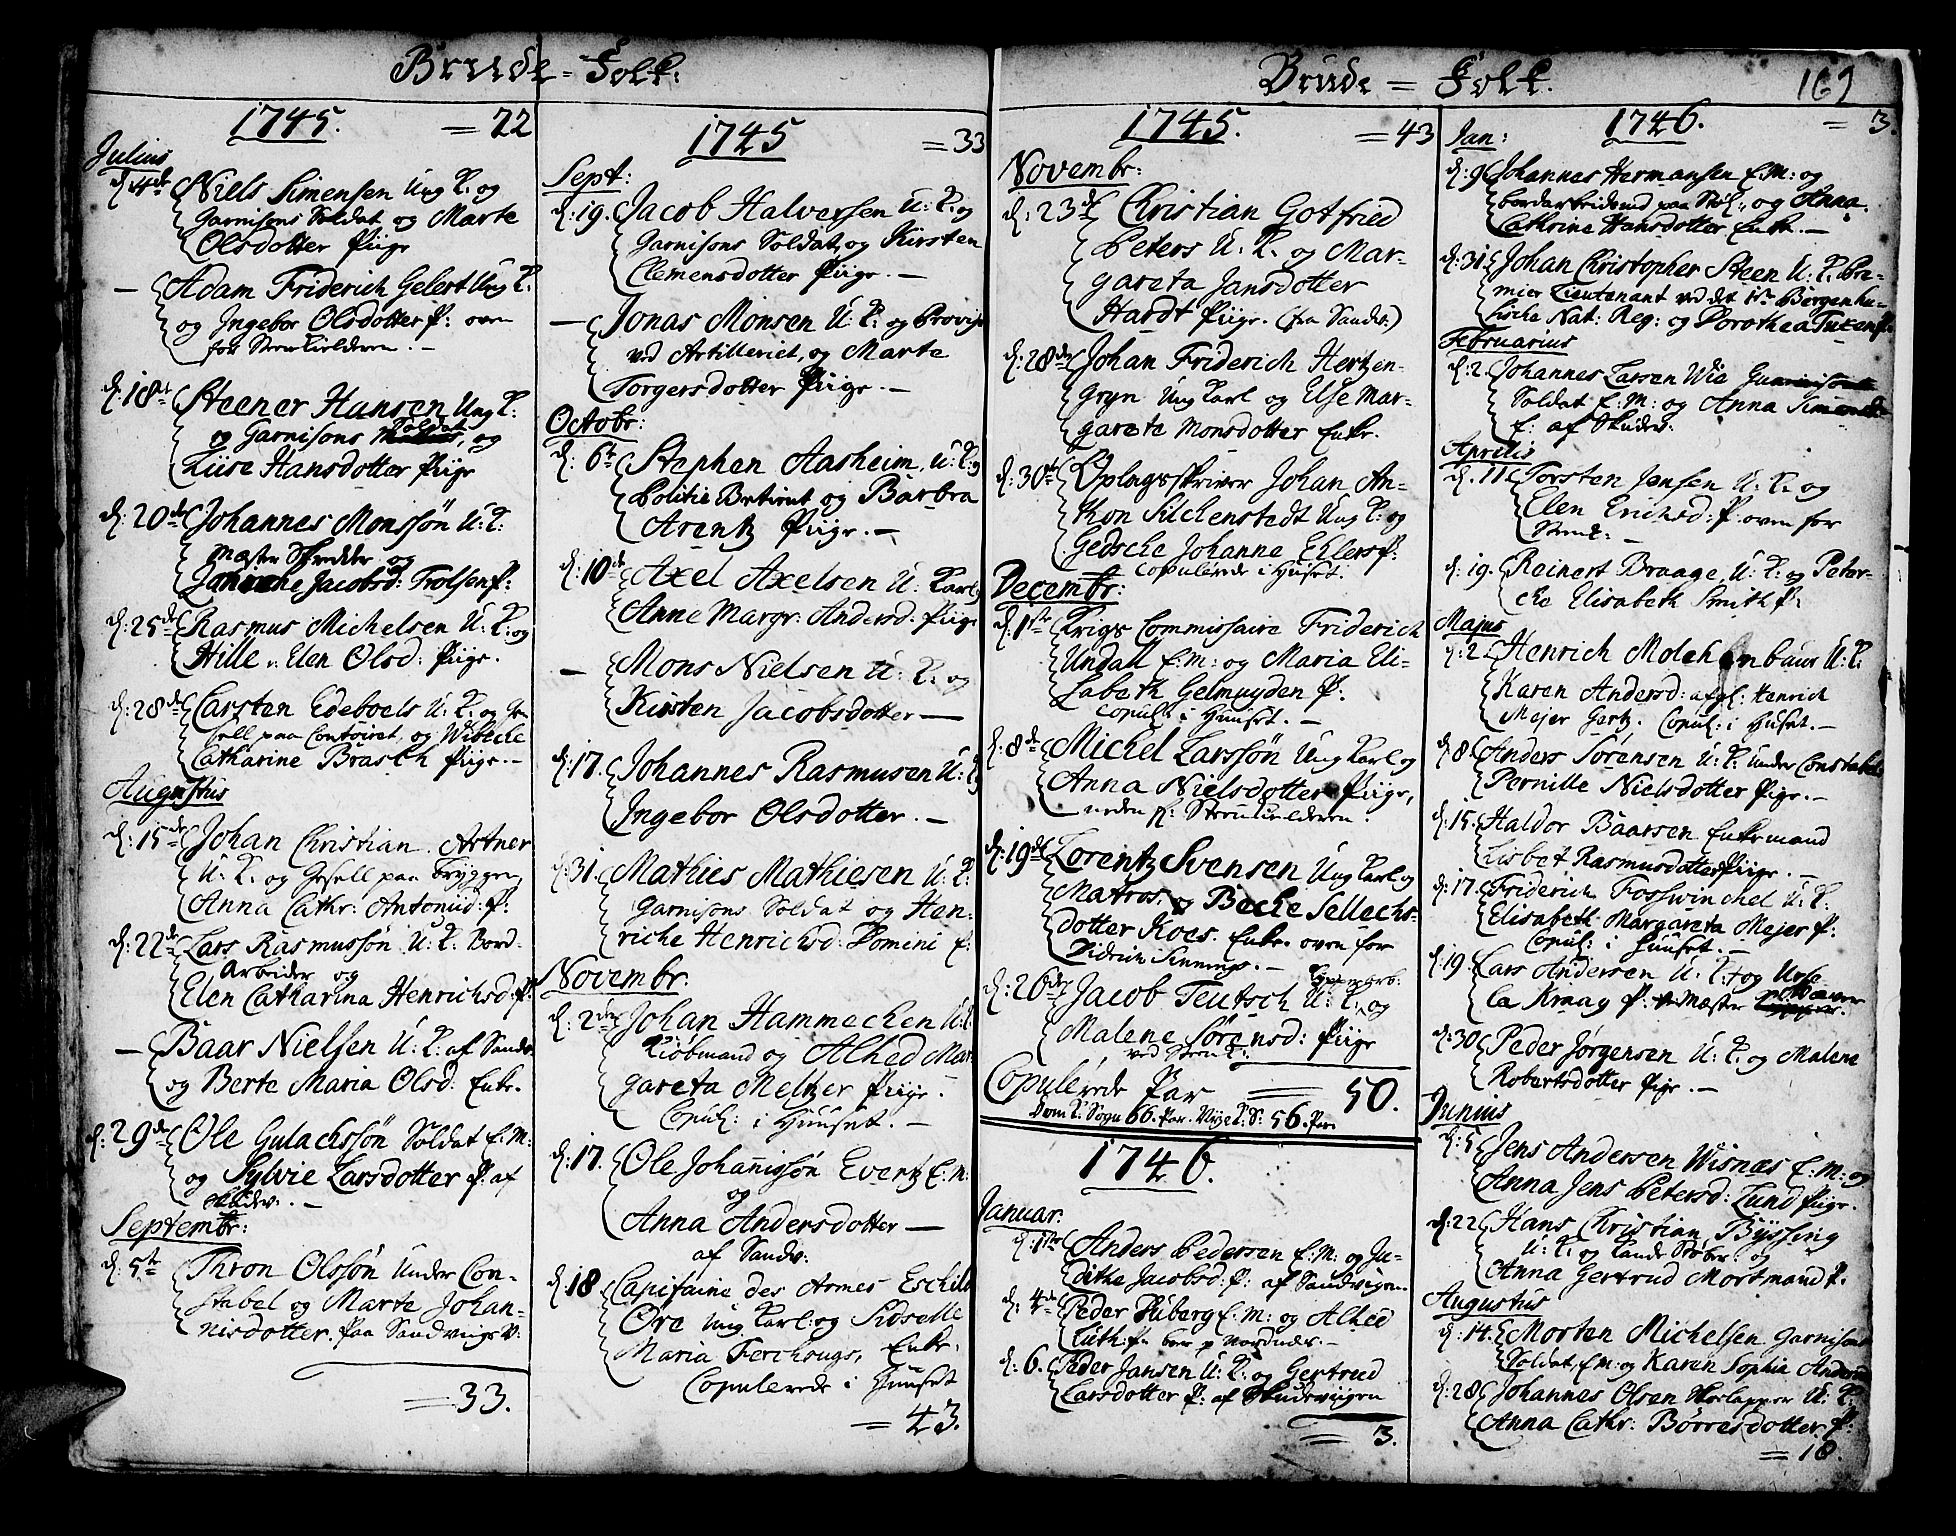 Brude = Folk:
1745. = 22
Julius
d. 4de Niels Simensen Ung K. og
Garnisons Soldat og Marte
Olsdotter Piige
— Adam Friderich Gelert Ung K.
og Ingebor Olsdotter P: oven
for
d. 18de Steener Hansen Ung K:
og Garnisons Soldat, og
Luse Hansdotter Piige
d: 20de Johannes Monssøn U: K:
Mæster Skredder og
Johanne Jacobsd: Trolsen P:
d: 25de Rasmus Michelsen U: K: og
Hille v. Elen Olsd: Piige.
d: 28de Carsten Edeboels U: K: og Ge-
sell paa Contoiret, og Wibecke
Catharine Brasch Piige. —
Augustus
d: 15de Johan Christian Artner
U: K: og Gesell paa Bryggen
Anna Cathr: Antonid: P:
d: 22de Lars Rasmussøn U: K: Bord-
Arbeider og
Elen Catharina Henrichsd: P:
— Baar Nielsen U: K: af Sandv.
og Berte Maria Olsd: Enke.
d: 29de Ole Gulachssøn Soldat E: M:
og Sylvie Larsdotter P: af
Skudev: —
Septembr:
d: 5te Thron Olssøn Under Con-
stabel og Marte Johan-
nisdotter. Paa Sandviigs V:
= 33.
1745 = 33
Sept:
d: 19. Jacob Halversen U: K: og
Garnisons Soldat, og Kirsten
Clemensdotter Piige. —
— Jonas Monsen U: K: og
ved Artilleriet, og Marte
Torgersdotter Piige. —
Octobr:
d: 6te Stephen Aasheim, U: K: og
Politie Betient og Barbra
Arentz Piige. —
d: 10de Axel Axelsen U: Karl og
Anne Margr: Andersd: Piige
— Mons Nielsen U: K: og
Kirsten Jacobsdotter —
d: 17. Johannes Rasmusen U: K
Ingebor Olsdotter. —
d: 31. Mathies Mathiesen U: K:
Garnisons Soldat og Hen-
riche Henrichsd: Homini E:
Novembr.
d: 2den Johan Hammecken U: K
Kiøbmand og Alhed Mar-
gareta Meltzer Piige.
Copul: i Huuset. —
d: 17. Ole Johanissøn Evertz E: M:
og
Anna Andersdotter —
af Sandv:
d: 18 Capitaine des Armes Eschild
Øre Ung Karl: og Sidselle
Maria Ferchougs, Enke,
Copulerede i Huuset
= 43.
Brude = Folk. 169
1745. = 43
Novembr:
d: 23de Christian Gotfried
Peters U: K: og Mar-
gareta Jansdotter
Hardt Piige. (fra Sandv:)
d: 28de Johan Friderich Hertzen-
gryn Ung Karl og Else Mar-
garete Monsdotter Enke.
d: 30te Oplagsskriver Johan An-
thon Silchenstedt Ung K: og
Gedsche Johanne Ehlers P:
Copulerede i Huset.
Decembr:
d: 1ste Krigs Commissaire Friderich
Undall E: M: og Maria Eli-
sabeth Gelmuyden P:
Copul: i Huuset. —
d: 8de Michel Larssøn Ung Karl og
Anna Nielsdotter Piige,
neden f:
d: 19de Lorentz Svensen Ung Karl og
Matros, og Beche Sellechs-
dotter Koes. Enke. oven for
Didrich Sinnings. —
d: 26de Jacob Teutsch U: K. og
Malene Sørensd: Piige
Copulerede Par = 50.
Dom K: Sogn 66. Par. Nye K: S: 56. Par.
1746.
Januar.
d: 1ste Anders Pedersen E: M: og Ju-
dithe Jacobsd: P: af Sandvigen
d: 4de Peder Huberg E: M: og Alhed
Luth: P:
d: 6. Peder Jansen U: K: og Gertrud
Larsdotter P: af Skudeviigen
= 3.
1746. = 3.
Jan:
d: 9. Johannes Hermansen E: M: og
bordarbeidend paa Støl., og Anna
Cathrine Hansdotter Enke. —
d: 31. Johan Christopher Steen U: K. Pre-
mier Lieutenant ved det 1ste Bergenhu-
siske Nat: Reg: og Dorothea Tuxen P.
Februarius
d: 2. Johannes Larsen Wie Garnisons
Soldat E: M: og Anna Simensd:
E: af Skudev:
Aprilis
d: 11. Torsten Jensen U: K: og
Elen Erichsd: P: oven for
d: 19. Reinert Braage, U: K: og Peter-
che Elisabeth Smith P:
Majus
d: 2. Henrich Molchenbuur U: K.
Karen Andersd: afgl: Henrich
Mejer Gertz. Copul: i Huset. —
d: 8. Anders Sørensen U: K. Under Constabel
Pernille Nielsdotter Pige. —
d: 15. Haldor Baarsen Enkemand
Lisbet Rasmusdotter Piige. —
d: 17. Friderich Fosswinckel U: K.
Elisabeth Margareta Mejer P:
Copul: i Huuset. —
d: 19. Lars Andersen U: K: og Urse
la Kraag P:
d: 30 Peder Jørgensen U: K. og Malene
Robertsdotter Pige. —
Junius
d: 5 Jens Andersen Wisnæs E: M: og
Anna Jens Petersd: Lund Piige.
d: 22 Hans Christian Byssing
U: K. og Kande Støber og
Anna Gertrud Mortmand P.
Augustus
d: 14. Morten Michelsen Garnisons
Soldat, E: M: og Karen Sophia Andersd
d: 28 Johannes Olsen Skoelapper U: K.
Anna Cathr: Børresdotter P:
= 18.